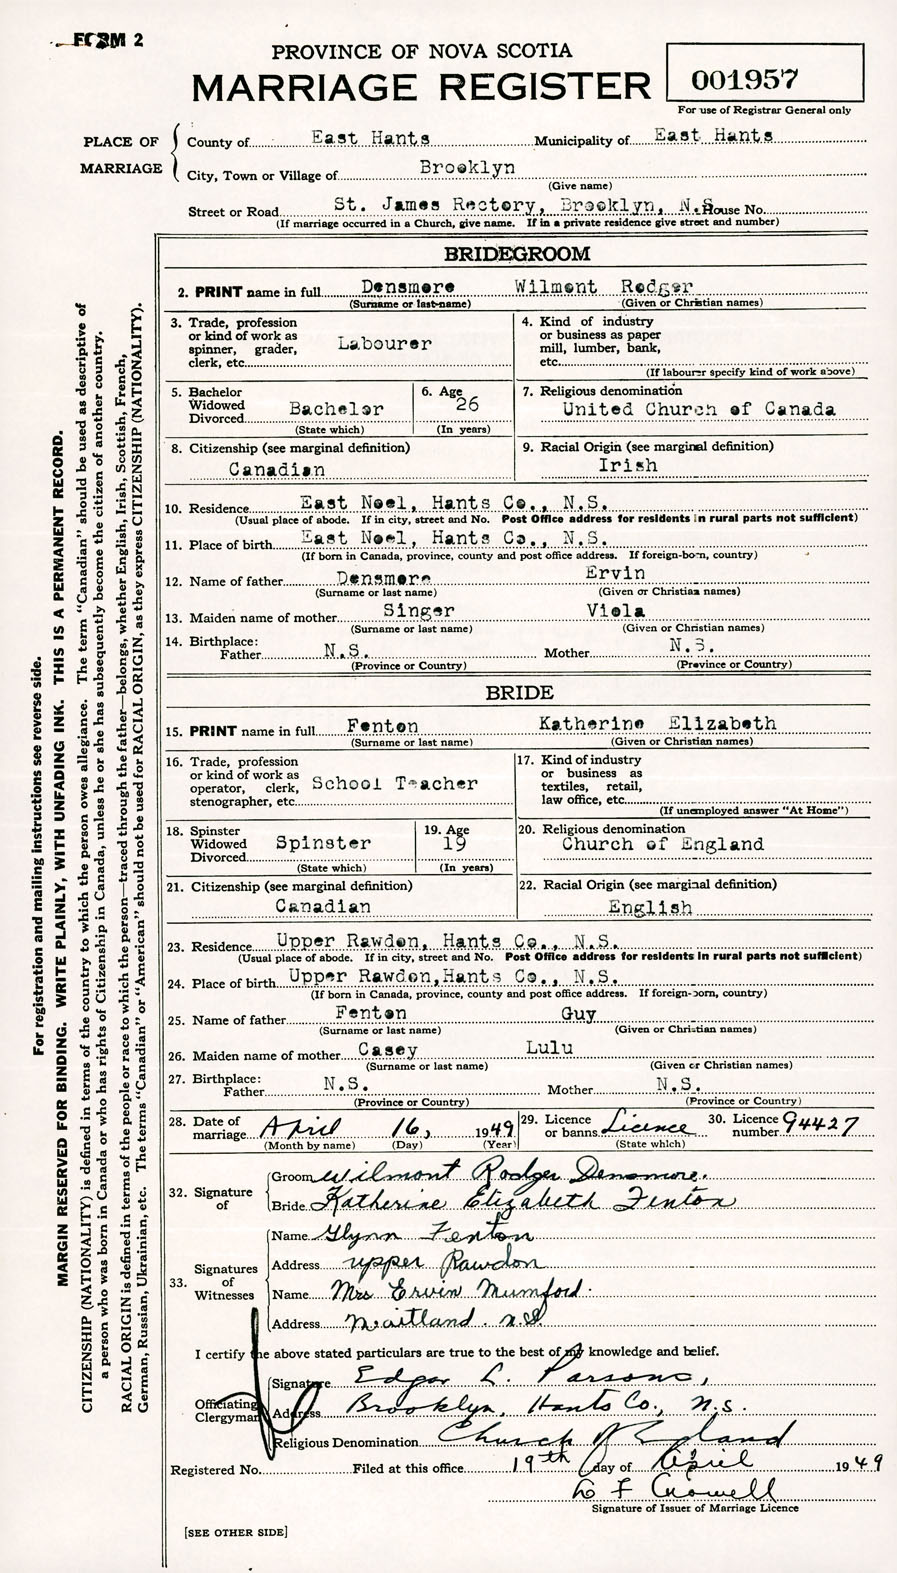 FORM 2
PROVINCE OF NOVA SCOTIA
MARRIAGE REGISTER
001957
For use of Registrar General only
PLACE OF MARRIAGE
County of East Hants Municipality of East Hants
City, Town or Village of Brooklyn
(Give name)
Street or Road St. James Rectory, Brooklyn, N.S. House No.
(If marriage occurred in a Church, give name. If in a private residence give street and number)
BRIDEGROOM
2. PRINT name in full Densmore Wilmont Rodger
(Surname or last name) (Given or Christian names)
3. Trade, profession or kind of work as spinner, grader, clerk, etc. Labourer
4. Kind of industry or business as paper mill, lumber, bank, etc.
(If labourer specify kind of work above)
5. Bachelor Widowed Divorced Bachelor
(State which)
6. Age 26
(In years)
7. Religious denomination
United Church of Canada
8. Citizenship (see marginal definition)
Canadian
9. Racial Origin (see marginal definition)
Irish
10. Residence East Noel, Hants Co., N.S.
(Usual place of abode. If in city, street and No. Post Office address for residents in rural parts not sufficient)
11. Place of birth East Noel, Hants Co., N.S.
(If born in Canada, province, county and post office address. If foreign-born, country)
12. Name of father Densmore Ervin
(Surname or last name) (Given or Christian names)
13. Maiden name of mother Singer Viola
(Surname or last name) (Given or Christian names)
14. Birthplace:
Father N.S. Mother N.S.
(Province or Country) (Province or Country)
BRIDE
15. PRINT name in full Fenton Katherine Elizabeth
(Surname or last name) (Given or Christian names)
16. Trade, profession or kind of work as operator, clerk, stenographer, etc. School Teacher
17. Kind of industry or business as textiles, retail, law office, etc.
(If unemployed answer "At Home")
18. Spinster Widowed Divorced Spinster
(State which)
19. Age 19
(In years)
20. Religious denomination
Church of England
21. Citizenship (see marginal definition)
Canadian
22. Racial Origin (see marginal definition)
English
23. Residence Upper Rawdon, Hants Co., N.S.
(Usual place of abode. If in city, street and No. Post Office address for residents in rural parts not sufficient)
24. Place of birth Upper Rawdon, Hants Co., N.S.
(If born in Canada, province, county and post office address. If foreign-born, country)
25. Name of father Fenton Guy
(Surname or last name) (Given or Christian names)
26. Maiden name of mother Casey Lulu
(Surname or last name) (Given or Christian names)
27. Birthplace:
Father N.S. Mother N.S.
(Province or Country) (Province or Country)
28. Date of marriage April 16, 1949
(Month by name) (Day) (Year)
29. Licence or banns Licence
(State which)
30. Licence number 94427
32. Signature of
Groom Wilmont Rodger Densmore.
Bride Katherine Elizabeth Fenton
33. Signatures of Witnesses
Name Glynn Fenton
Address upper Rawdon
Name Mrs Ervin Mumford.
Address Maitland. N.S.
I certify the above stated particulars are true to the best of my knowledge and belief.
Officiating Clergyman
Signature Edgar L. Parsons,
Address Brooklyn, Hants Co., N.S.
Religious Denomination Church of England
Registered No. Filed at this office 19th day of April 1949
L F Crowell
Signature of Issuer of Marriage Licence
[SEE OTHER SIDE]
For registration and mailing instructions see reverse side.
MARGIN RESERVED FOR BINDING. WRITE PLAINLY, WITH UNFADING INK. THIS IS A PERMANENT RECORD.
CITIZENSHIP (NATIONALITY) is defined in terms of the country to which the person owes allegiance. The term "Canadian" should be used as descriptive of
a person who was born in Canada or who has rights of Citizenship in Canada, unless he or she has subsequently become the citizen of another country.
RACIAL ORIGIN is defined in terms of the people or race to which the person—traced through the father—belongs, whether English, Irish, Scottish, French,
German, Russian, Ukrainian, etc. The terms "Canadian" or "American" should not be used for RACIAL ORIGIN, as they express CITIZENSHIP (NATIONALITY).